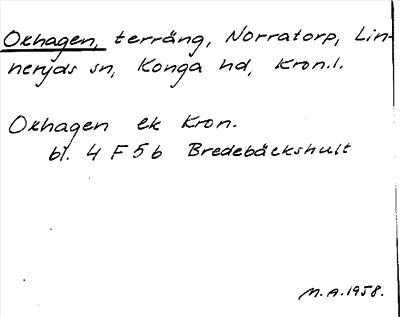 Oxhagen, terräng, Norratorp, Lin-
neryds sn, Konga hd, Kron.l.
Oxhagen ek Kron.
bl. 4 F 5 b Bredebäckshult
M.A. 1958.